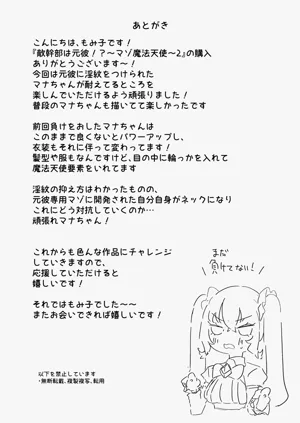 あとがき
こんにちは、もみ子です！
『敵幹部は元彼！？～マゾ魔法天使～2』の購入
ありがとうございます～！
今回は元彼に淫紋をつけられた
マナちゃんが耐えてるところを
楽しんでいただけるよう頑張りました！
普段のマナちゃんも描いてて楽しかったです
前回負けをおしたマナちゃんは
このままで良くないとパワーアップし、
衣装もそれに伴って変わってます！
髪型や服もなんですけど、目の中に輪っかを入れて
魔法天使要素をいれてます
淫紋の抑え方はわかったものの、
元彼専用マゾに開発された自分自身がネックになり
これにどう対抗していくのか…
頑張れマナちゃん！
これからも色んな作品にチャレンジ
していきますので、
応援していただけると
嬉しいです！
まだ
負けてない！
それではもみ子でした～～
またお会いできれば嬉しいです！
以下を禁止しています
・無断転載、複製複写、転用